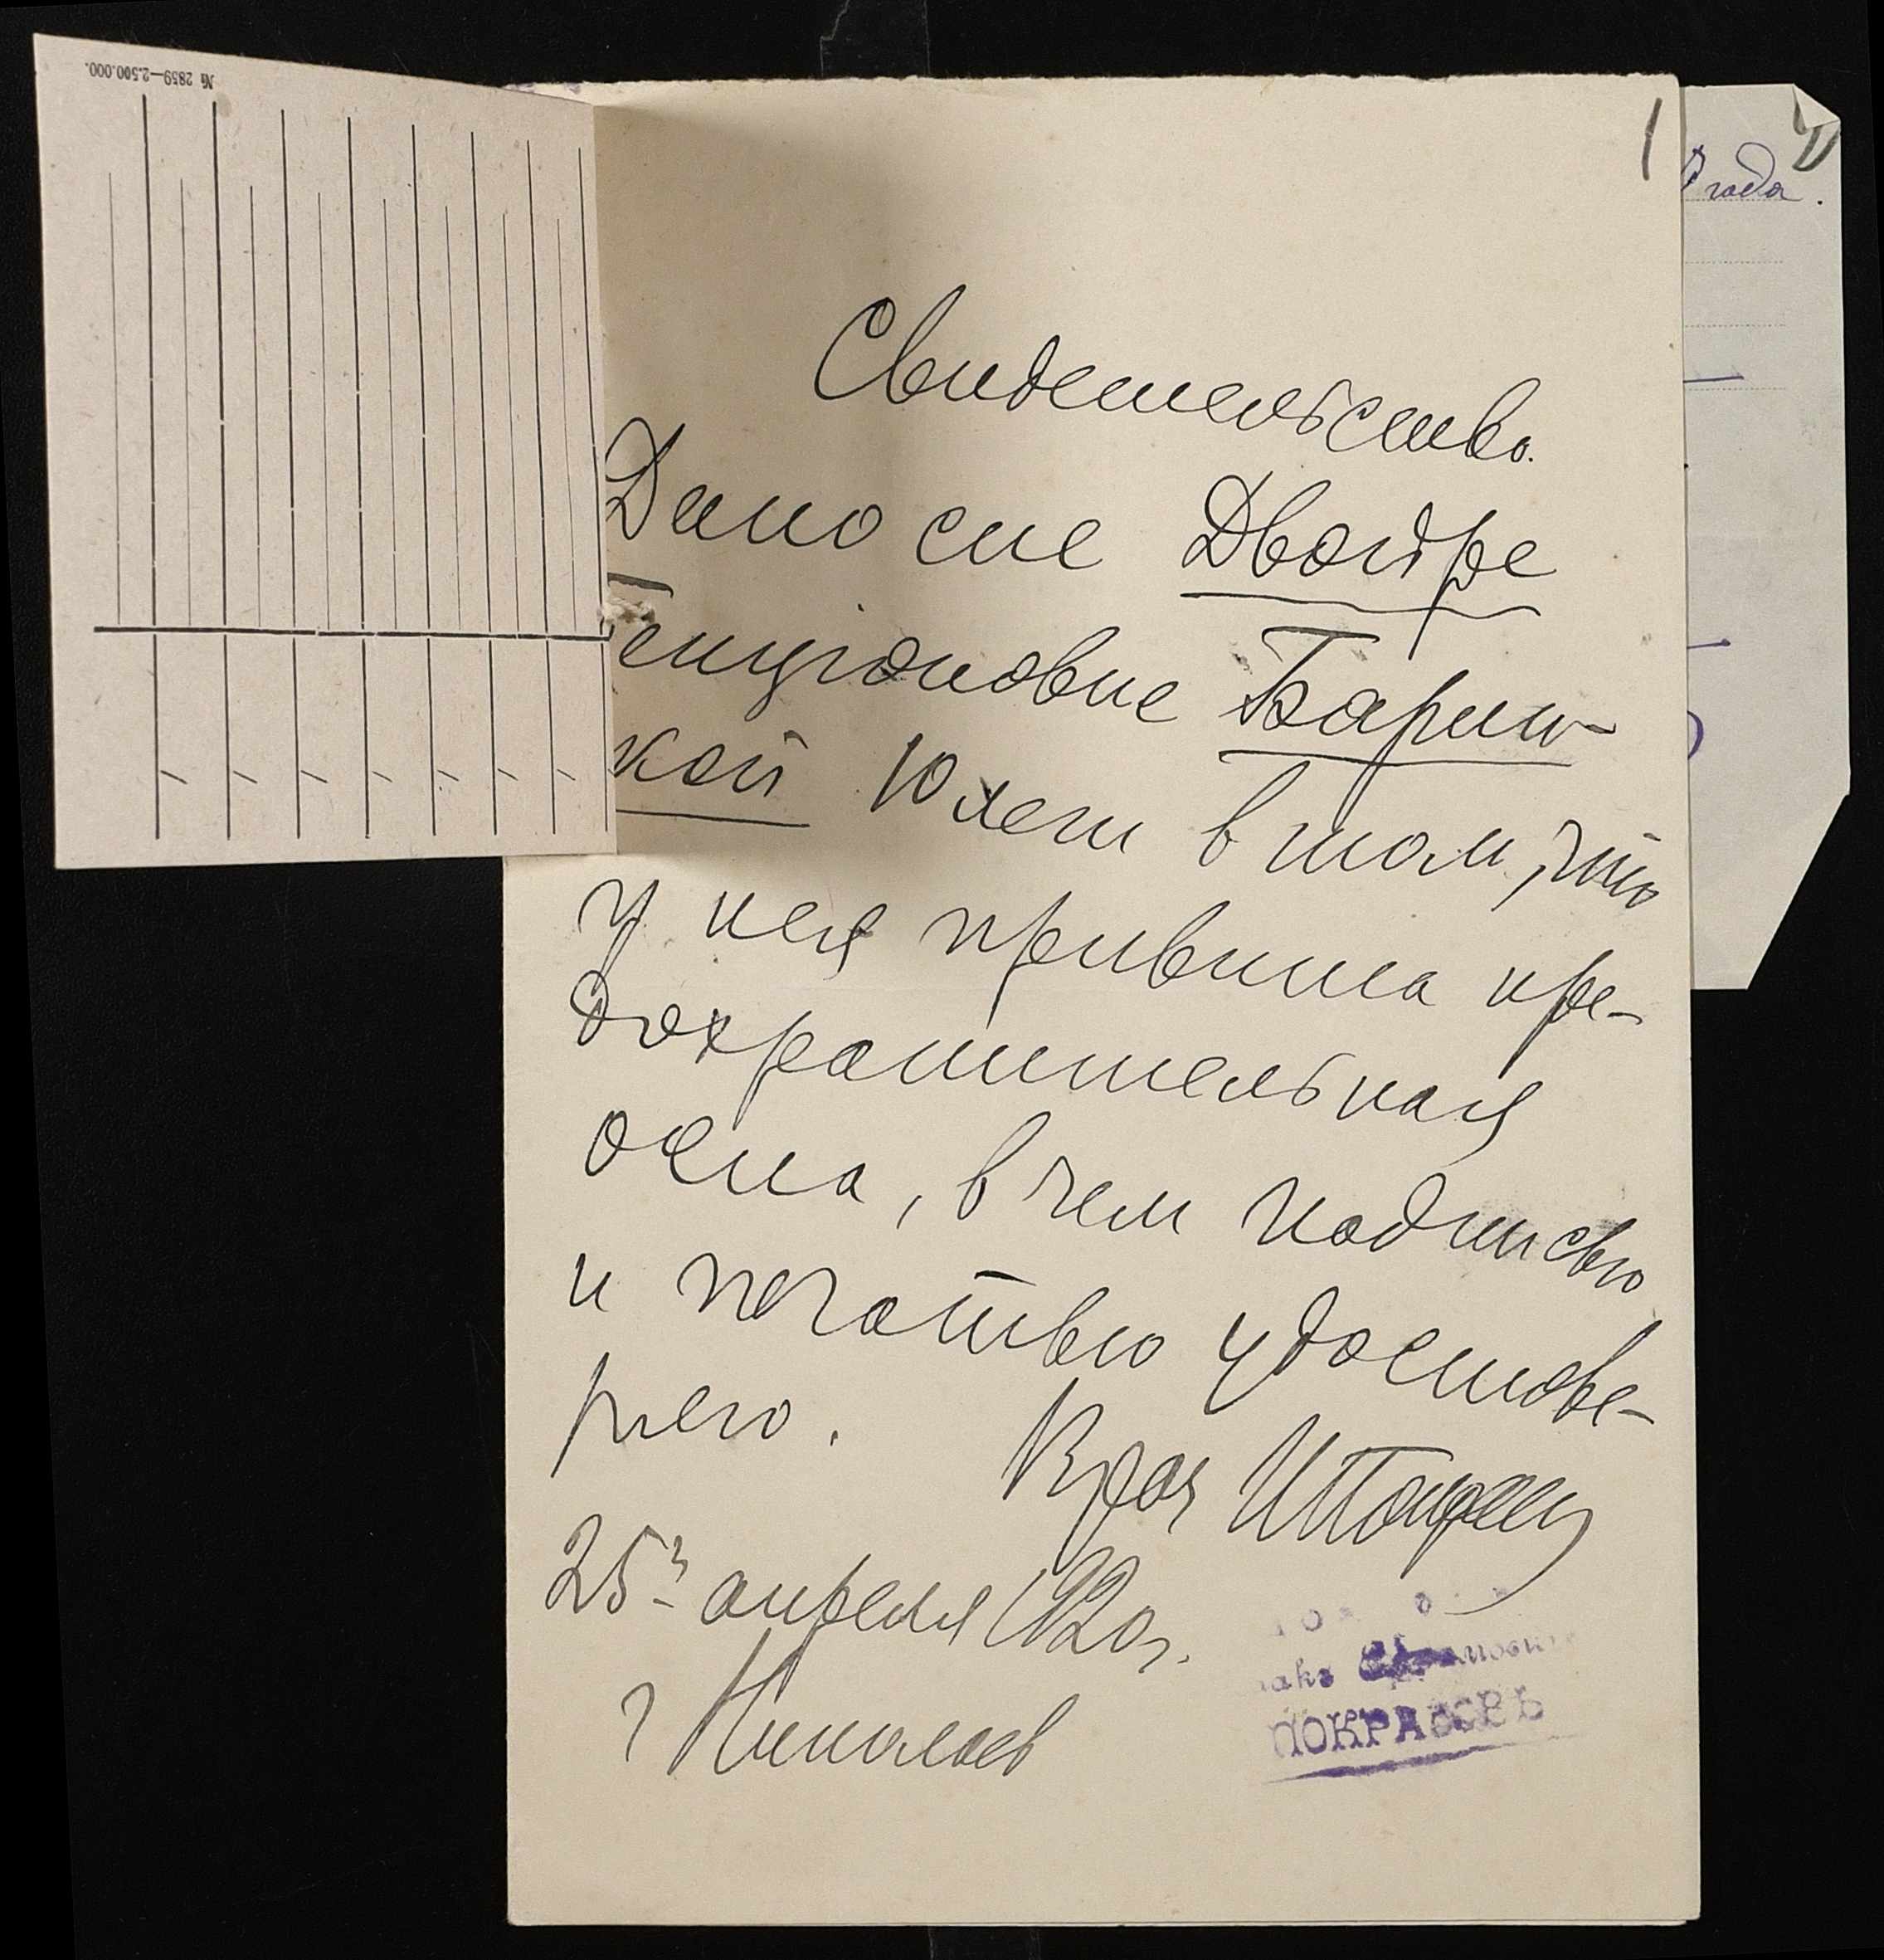 № 2859—2.500.000.
1
года.
Свидетельство.
Дано сие Двойре
енционовне Барит-
кой 10 лет в том, что
у нея привита пре-
дохранительная
оспа, в чем подписью
и печатью удостове-
ряю.
Врач
25го апреля 1920г.
г Николаев
ПОКРАССЪ